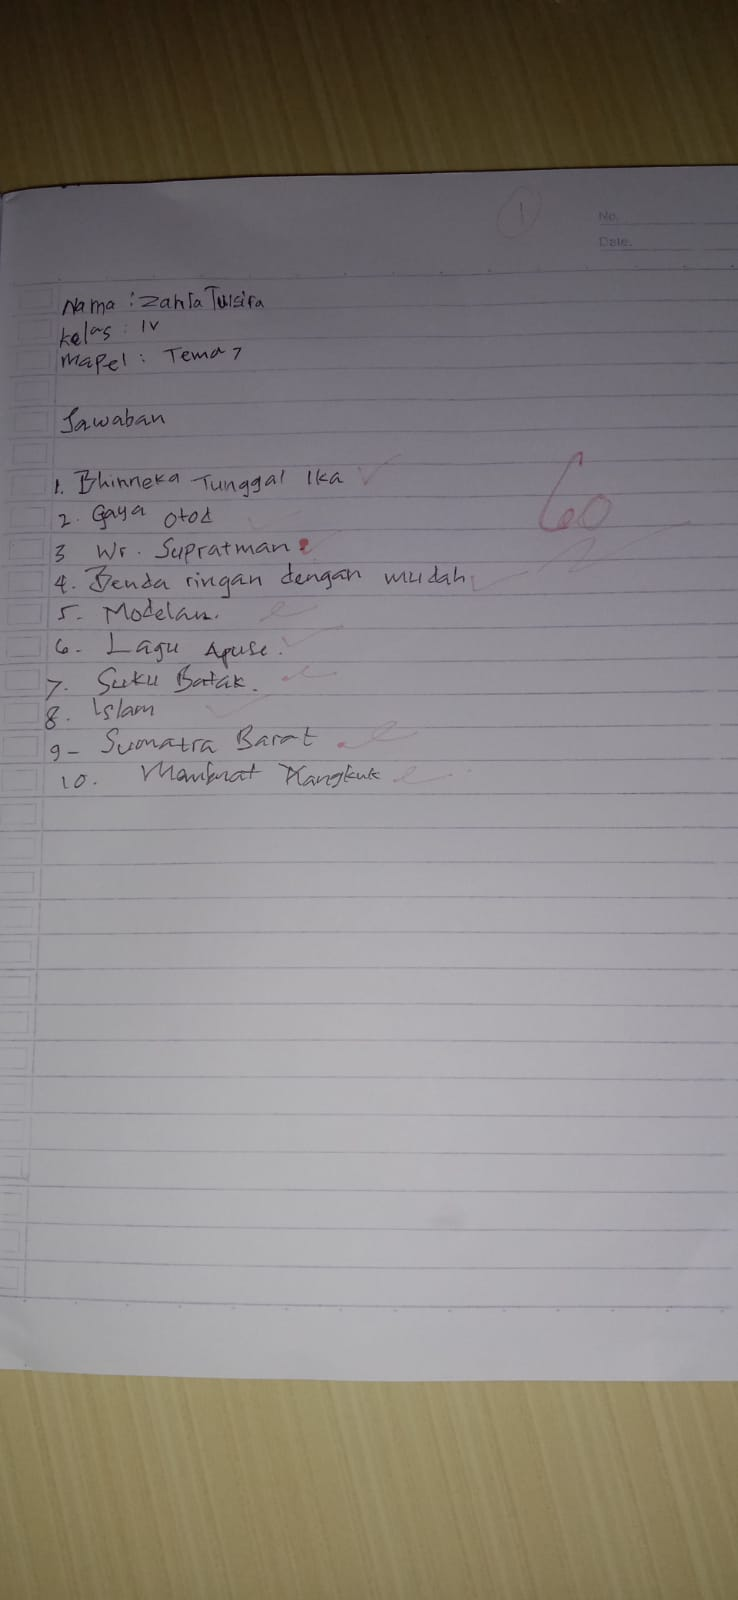 1
No.
Date.
Nama : Zahra Tulsifa
Kelas : IV
Mapel : Tema 7
Jawaban
1. Bhinneka Tunggal Ika
60
2. Gaya otot
3 Wr. Supratman
4. Benda ringan dengan mudah
5. Modelan.
6. Lagu Apuse.
7. Suku Batak.
8. Islam
9- Sumatra Barat
10. Membuat